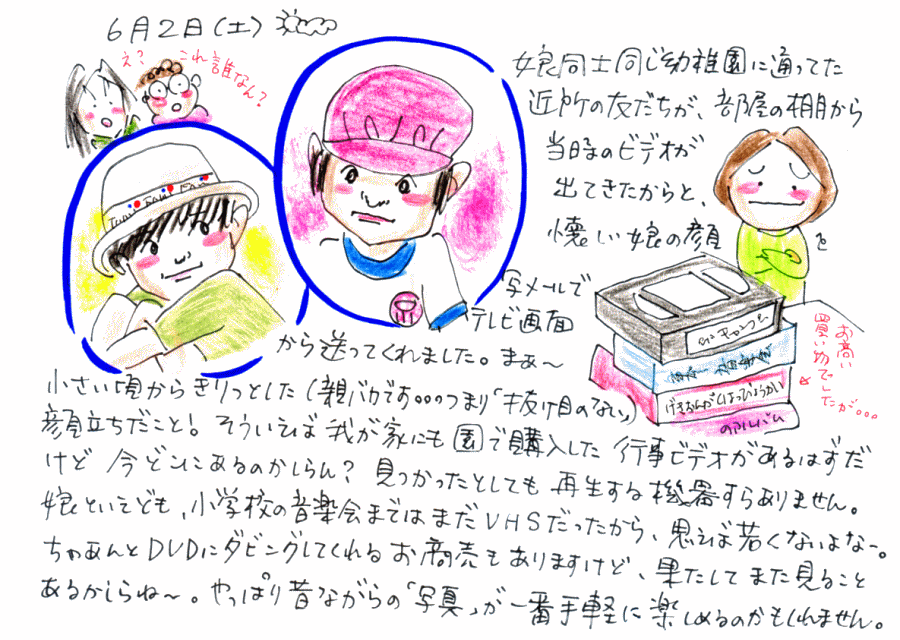 6月2日(土)
え?
これ誰なん?
娘同士同じ幼稚園に通ってた
近所の友だちが、部屋の棚から
当時のビデオが
出てきたからと、
懐しい娘の顔を
写メールで
テレビ画面
から送ってくれました。まぁ〜
お高い
買い物でし
たが。。。
げきおんがくはっぴょうかい
のアルバム
小さい頃からきりっとした(親バカです。。。つまり「抜け目のない」)
顔立ちだこと!そういえば我が家にも園で購入した行事ビデオがあるはずだ
けど今どこにあるのかしらん?見つかったとしても再生する機器すらありません。
娘といえども、小学校の音楽会まではまだVHSだったから、思えば若くないよな〜。
ちゃあんとDVDにダビングしてくれるお商売もありますけど、果たしてまた見ること
あるかしらね〜。やっぱり昔ながらの「写真」が一番手軽に楽しめるのかもしれません。